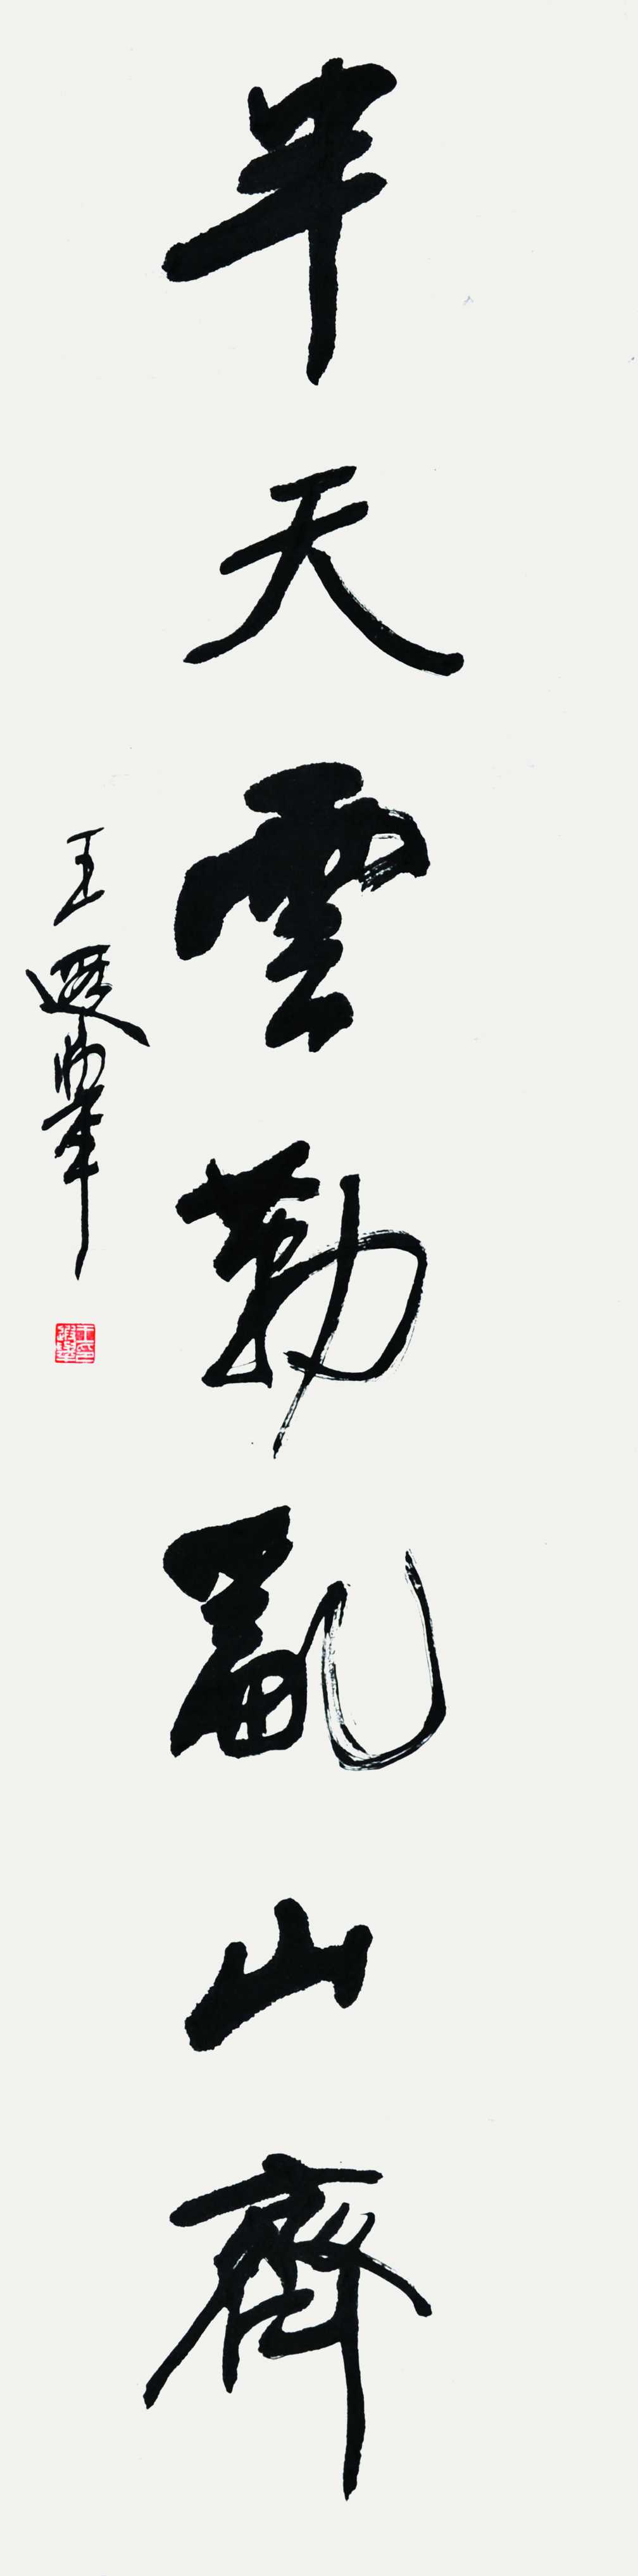 半天雲勒亂山齊
王遐舉